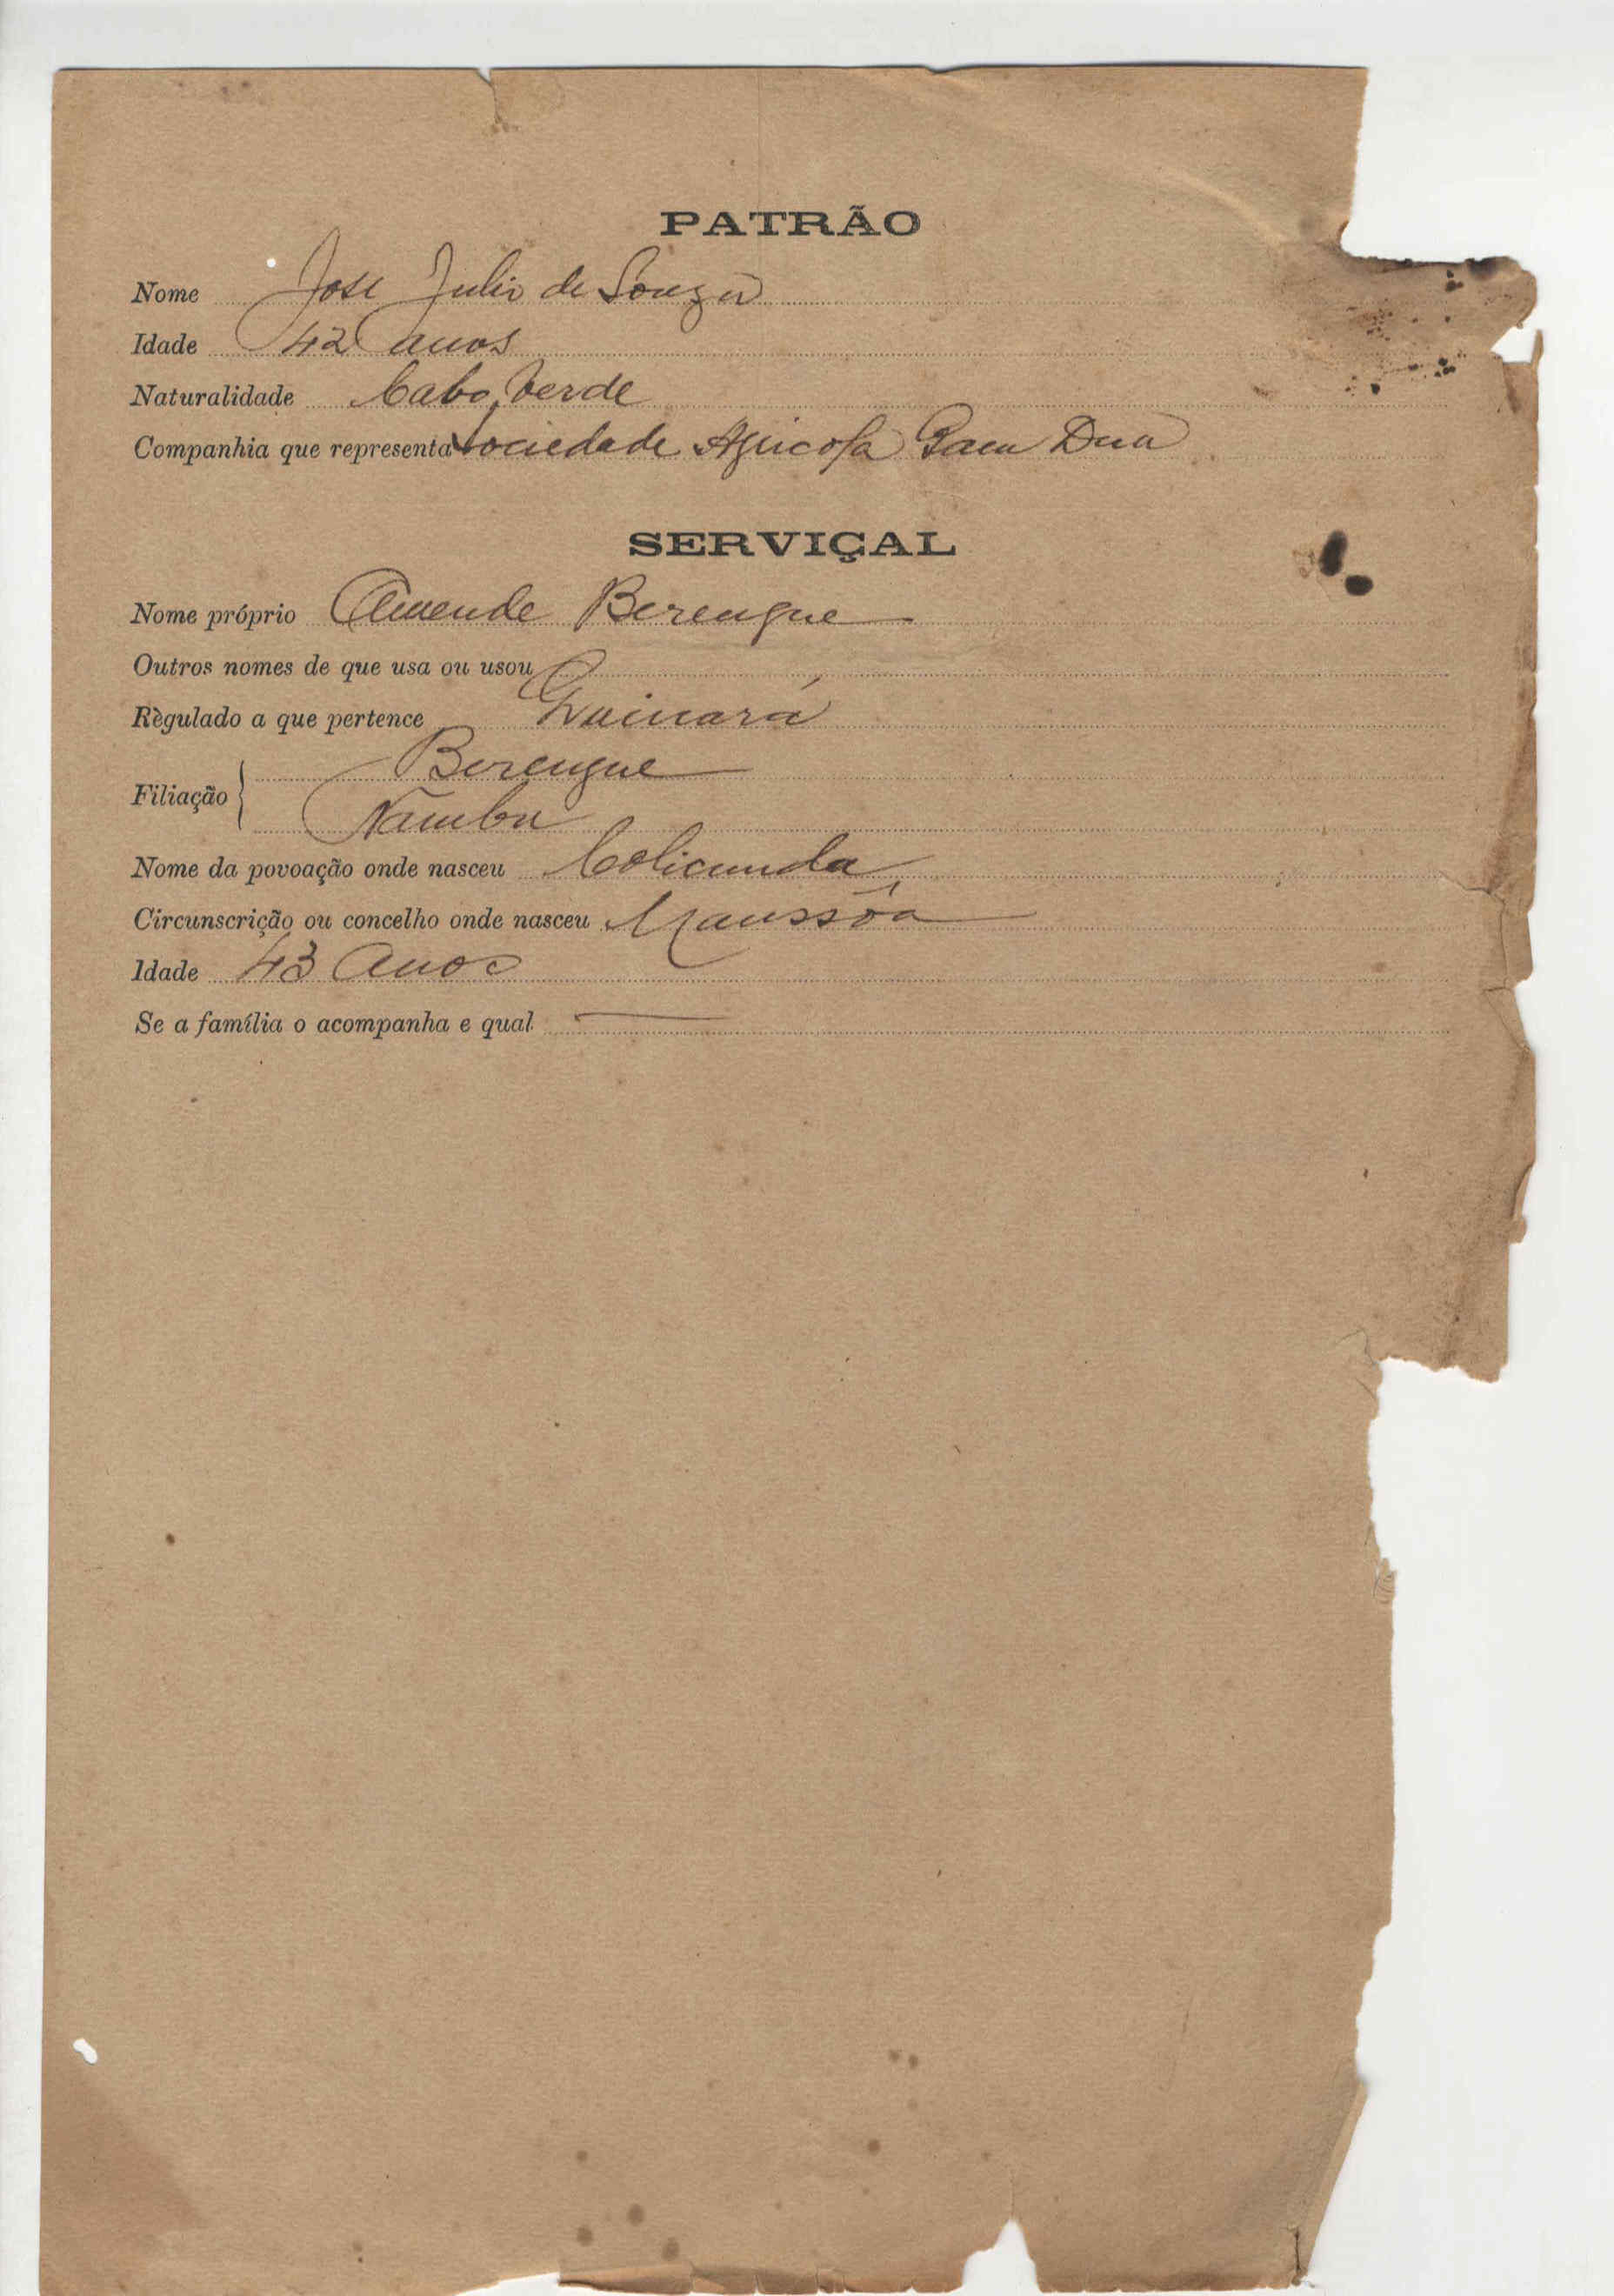 PATRÃO
Nome Jose Julio de Souza
Idade 42 anos
Naturalidade Cabo Verde
Companhia que representa Sociedade Agricola Gam Dua
SERVIÇAL
Nome próprio Amende Berengue
Outros nomes de que usa ou usou
Règulado a que pertence Guinará
Filiação { Berengue
Nambu
Nome da povoação onde nasceu Colicunda
Circunscrição ou concelho onde nasceu Manssôa
Idade 43 anos
Se a família o acompanha e qual —